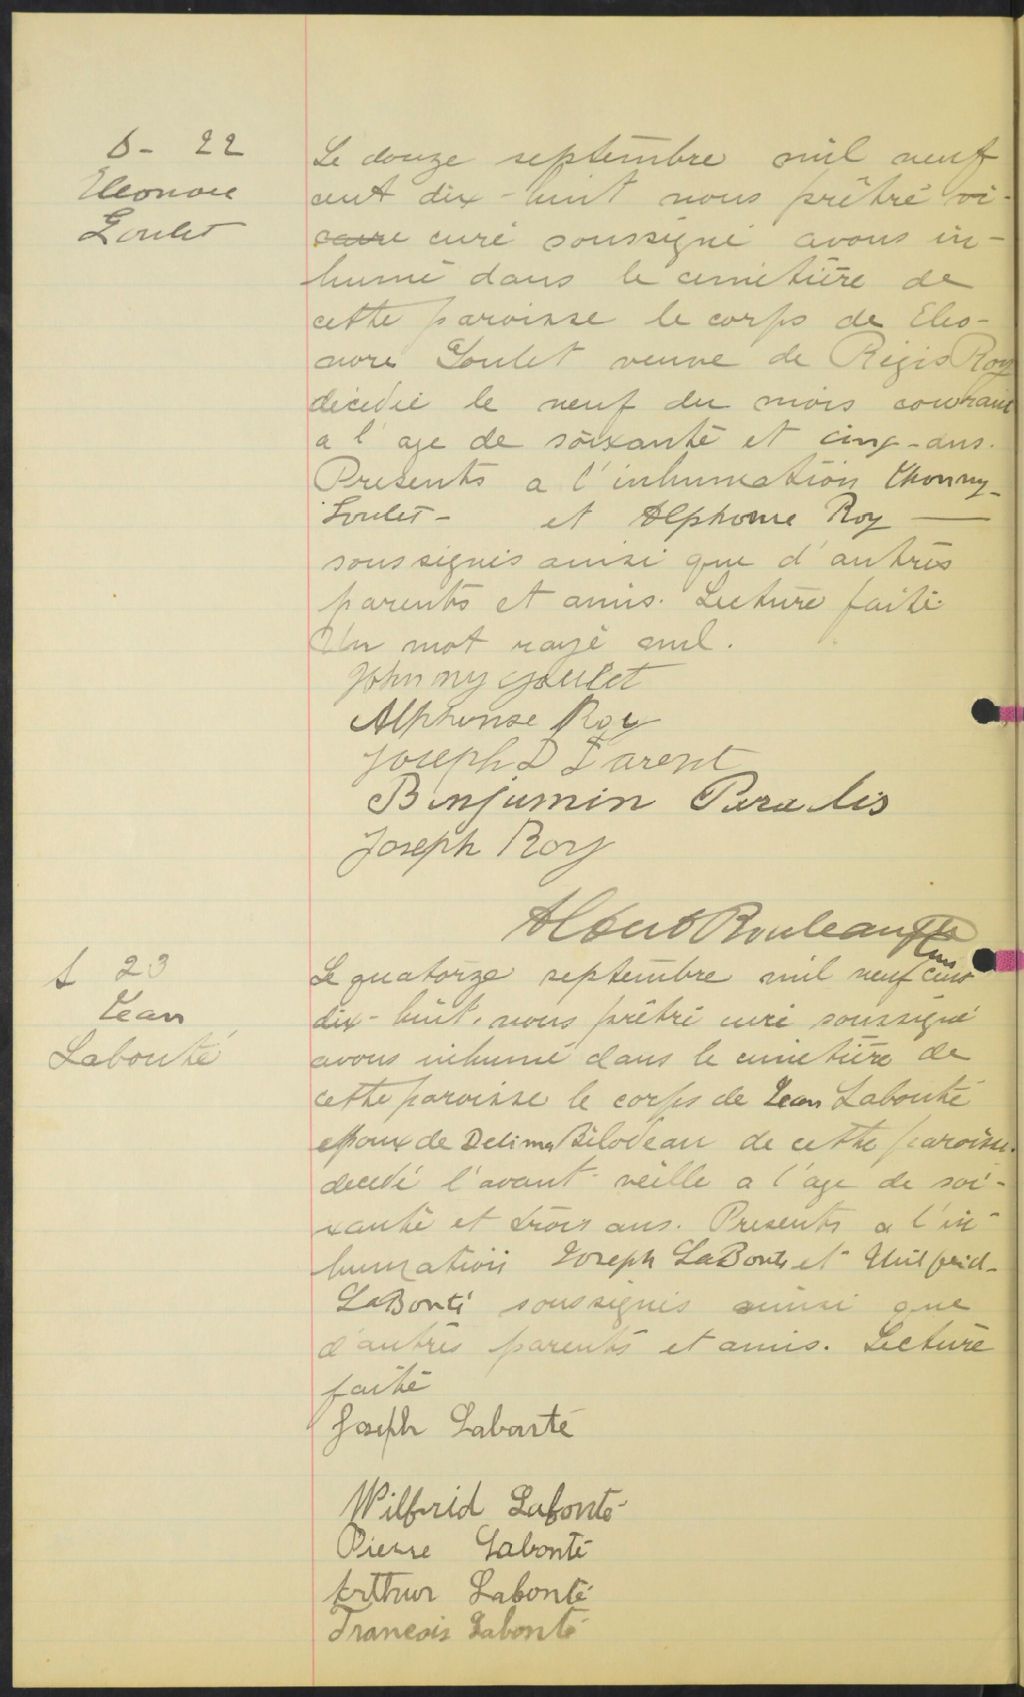 S - 22
Eleonore
Goulet
Le douze septembre mil neuf
cent dix-huit nous prêtre vi-
caire curé soussigné avons in-
humé dans le cimetière de
cette paroisse le corps de Eléo-
nore Goulet veuve de Régis Roy
décédée le neuf du mois courant
a l'age de soixante et cinq-ans.
Presents a l'inhumation Thonny-
Goulet - et Alphonse Roy —
soussignés ainsi que d'autres
parents et amis. Lecture faite.
Un mot rayé nul.
Johnny Goulet
Alphonse Roy
Joseph D Parent
Benjamin
Joseph Roy
Albert Rouleau Ptre
S 23
Jean
Labonté
Le quatorze septembre mil neuf cent
dix-huit, nous prêtre curé soussigné
avons inhumé dans le cimetière de
cette paroisse le corps de Jean Labonté
epoux de Delima Bilodeau de cette paroisse.
decedé l'avant-veille a l'age de soi-
xante et trois ans. Presents a l'in-
humation Joseph LaBonté et Wilfrid-
LaBonté soussignés ainsi que
d'autres parents et amis. Lecture
faite
Joseph Labonté
Wilfrid Labonté
Pierre Labonté
Arthur Labonté
Francois Labonté